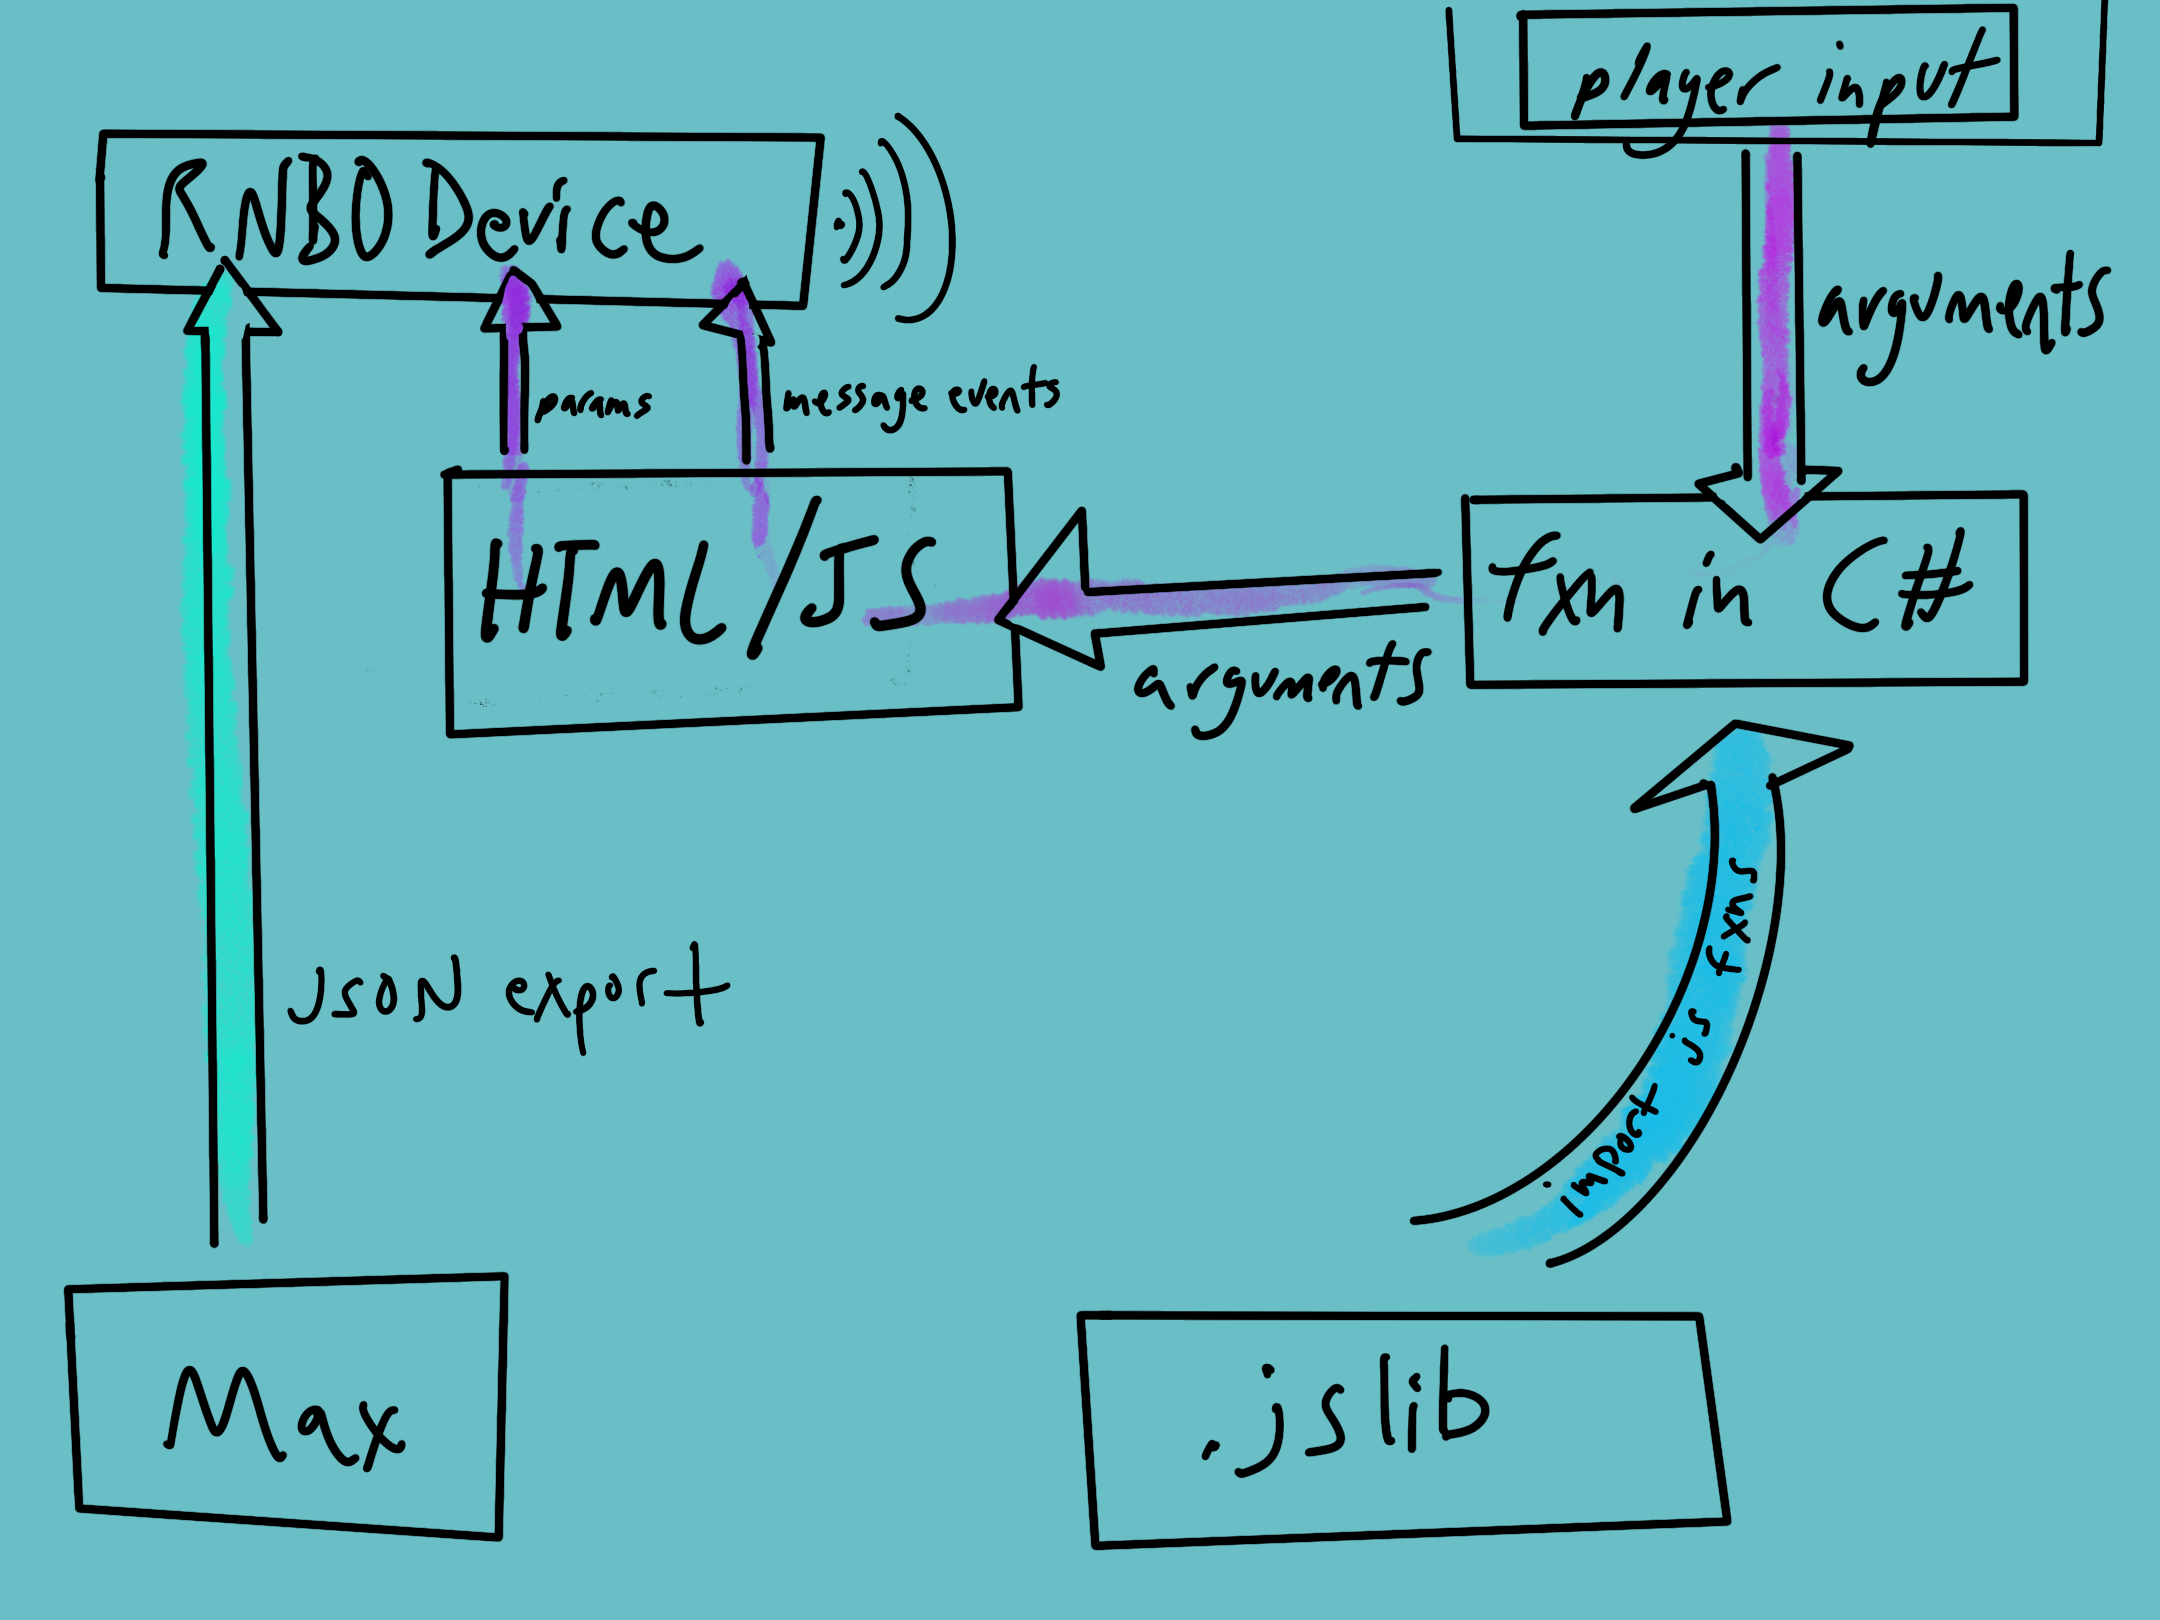 player input
RNBO Device
arguments
params
message events
HTML/JS
fxn in C#
arguments
import js fxns
JSON export
Max
.jslib